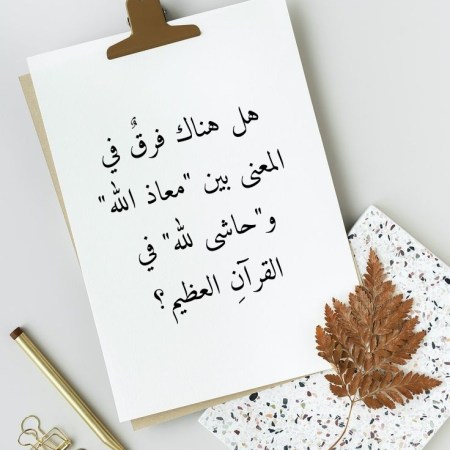 هل هناك فرقٌ في
المعنى بين "معاذ الله"
و"حاشى لله" في
القرآنِ العظيم؟